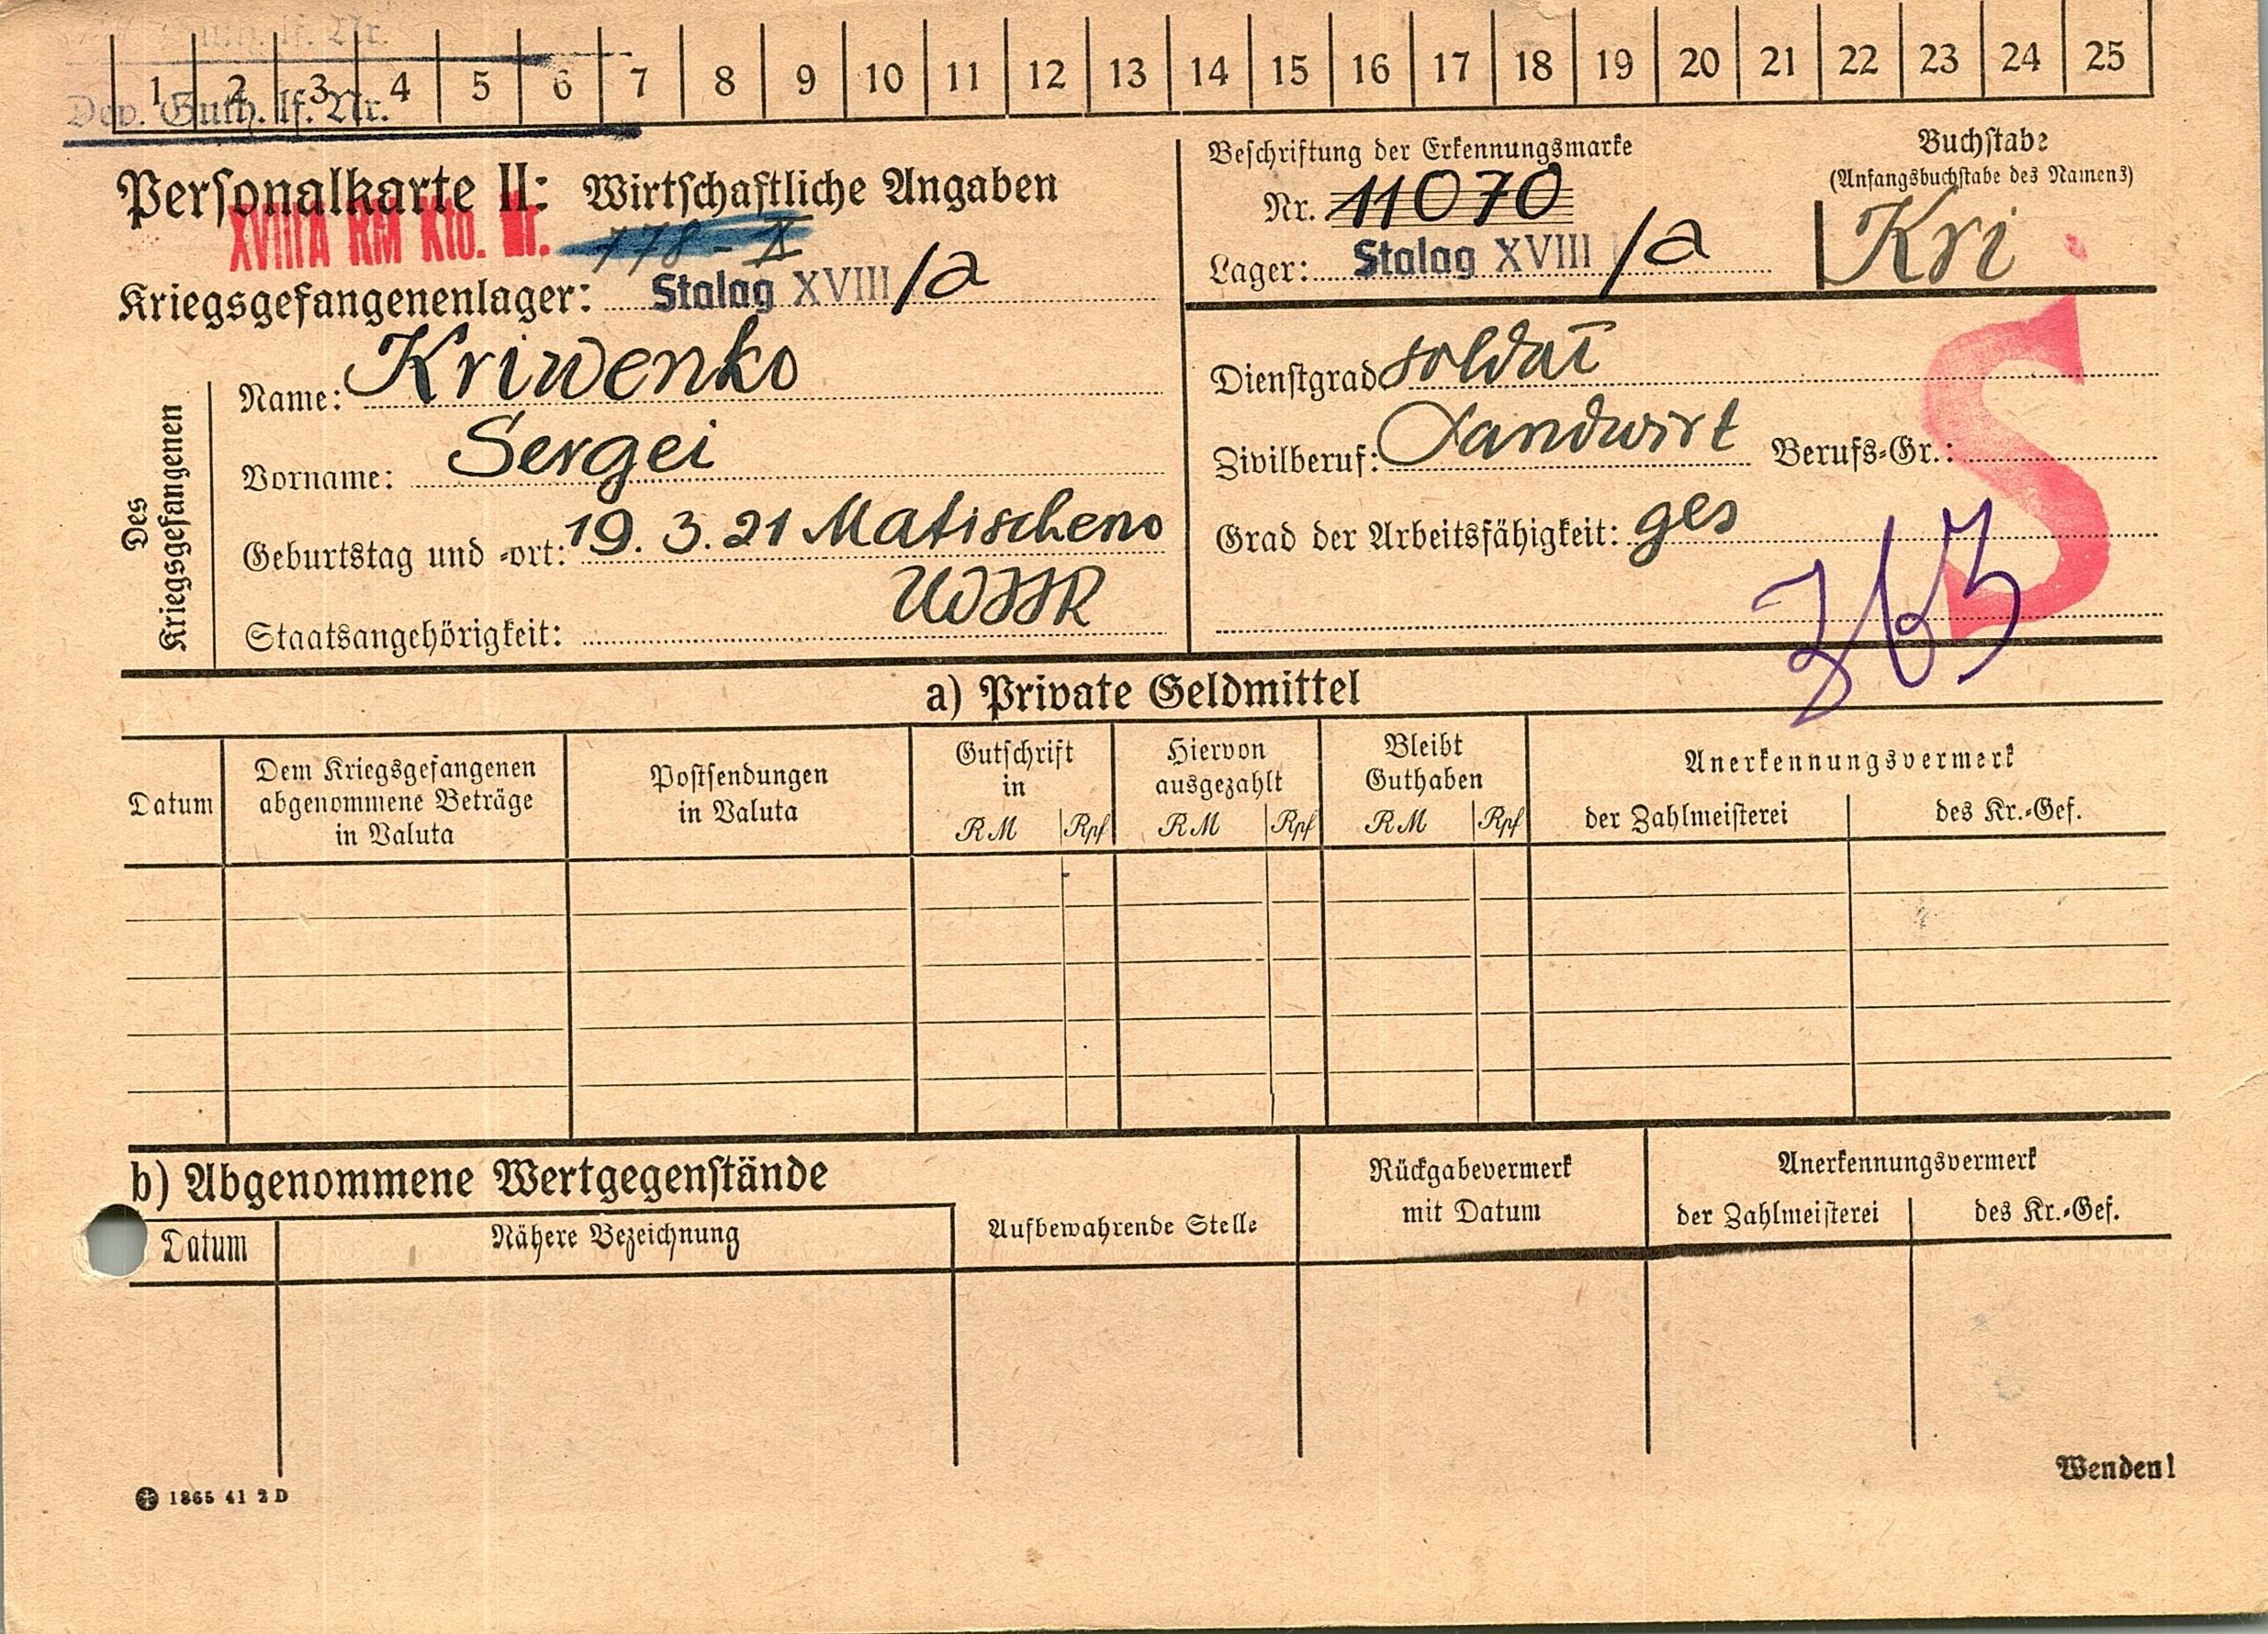 lf. Nr.
1 2 3 4 5 6 7 8 9 10 11 12 13 14 15 16 17 18 19 20 21 22 23 24 25
Dev. Guth. lf. Nr.
Personalkarte II: Wirtschaftliche Angaben
XVIIIA RM Kto. Nr. 778-X
Kriegsgefangenenlager: Stalag XVIII /a
Beschriftung der Erkennungsmarke
Nr. 11070
Lager: Stalag XVIII /a
Buchstabe
(Anfangsbuchstabe des Namens)
Kri
Des Kriegsgefangenen
Name: Kriwenko
Vorname: Sergei
Geburtstag und -ort: 19. 3. 21 Matischeno
Staatsangehörigkeit: UdSSR
Dienstgrad Soldat
Zivilberuf: Landwirt Berufs-Gr.:
Grad der Arbeitsfähigkeit: ges
S
a) Private Geldmittel
Datum
Dem Kriegsgefangenen
abgenommene Beträge
in Valuta
Postsendungen
in Valuta
Gutschrift
in
RM Rpf
Hiervon
ausgezahlt
RM Rpf
Bleibt
Guthaben
RM Rpf
Anerkennungsvermerk
der Zahlmeisterei
des Kr.-Gef.
b) Abgenommene Wertgegenstände
Datum
Nähere Bezeichnung
Aufbewahrende Stelle
Rückgabevermerk
mit Datum
Anerkennungsvermerk
der Zahlmeisterei
des Kr.-Gef.
Wenden!
1865 41 2 D